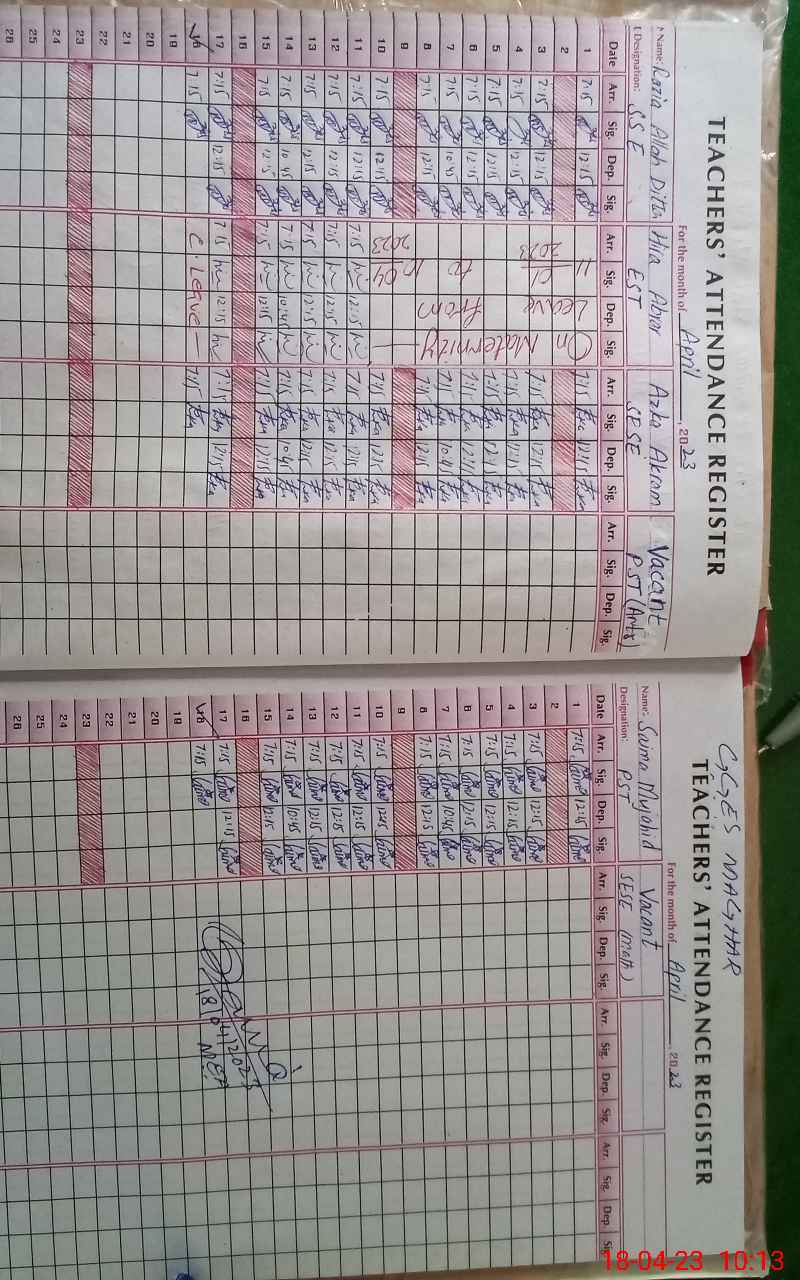 TEACHERS' ATTENDANCE REGISTER
For the month of April, 2023
Name: Razia Allah Ditta Hira Abrar Azka Akram Vacant
Designation: SSE EST SESE PST (Arts)
Date Arr. Sig. Dep. Sig. Arr. Sig. Dep. Sig. Arr. Sig. Dep. Sig. Arr. Sig. Dep. Sig.
1 7:15 12:15 7:15 12:15
2
3 7:15 12:15 7:15 12:15
4 7:15 12:15 7:15 12:15
5 7:15 12:15 7:15 12:15
6 7:15 12:15 7:15 12:15
7 7:15 10:45 7:15 10:45
8 7:15 12:15 7:15 12:15
9
10 7:15 12:15 7:15 12:15
11 7:15 12:15 7:15 12:15 7:15 12:15
12 7:15 12:15 7:15 12:15 7:15 12:15
13 7:15 12:15 7:15 12:15 7:15 12:15
14 7:15 10:45 7:15 10:45 7:15 10:45
15 7:15 12:15 7:15 12:15 7:15 12:15
16
17 7:15 12:15 7:15 12:15 7:15 12:15
18 7:15 C. Leave 7:15
19
20
21
22
23
24
25
26
On Maternity
Leave from
2023
to
2023
GGES MAGHAR
TEACHERS' ATTENDANCE REGISTER
For the month of April, 2023
Name: Saima Mujahid Vacant
Designation: PST SESE (math)
Date Arr. Sig. Dep. Sig. Arr. Sig. Dep. Sig. Arr. Sig. Dep. Sig. Arr. Sig. Dep. Sig.
1 7:15 12:15
2
3 7:15 12:15
4 7:15 12:15
5 7:15 12:15
6 7:15 12:15
7 7:15 10:45
8 7:15 12:15
9
10 7:15 12:15
11 7:15 12:15
12 7:15 12:15
13 7:15 12:15
14 7:15 10:45
15 7:15 12:15
16
17 7:15 12:15
18 7:15
19
20
21
22
23
24
25
26
18/04/2023
MEA
18-04-23 10:13